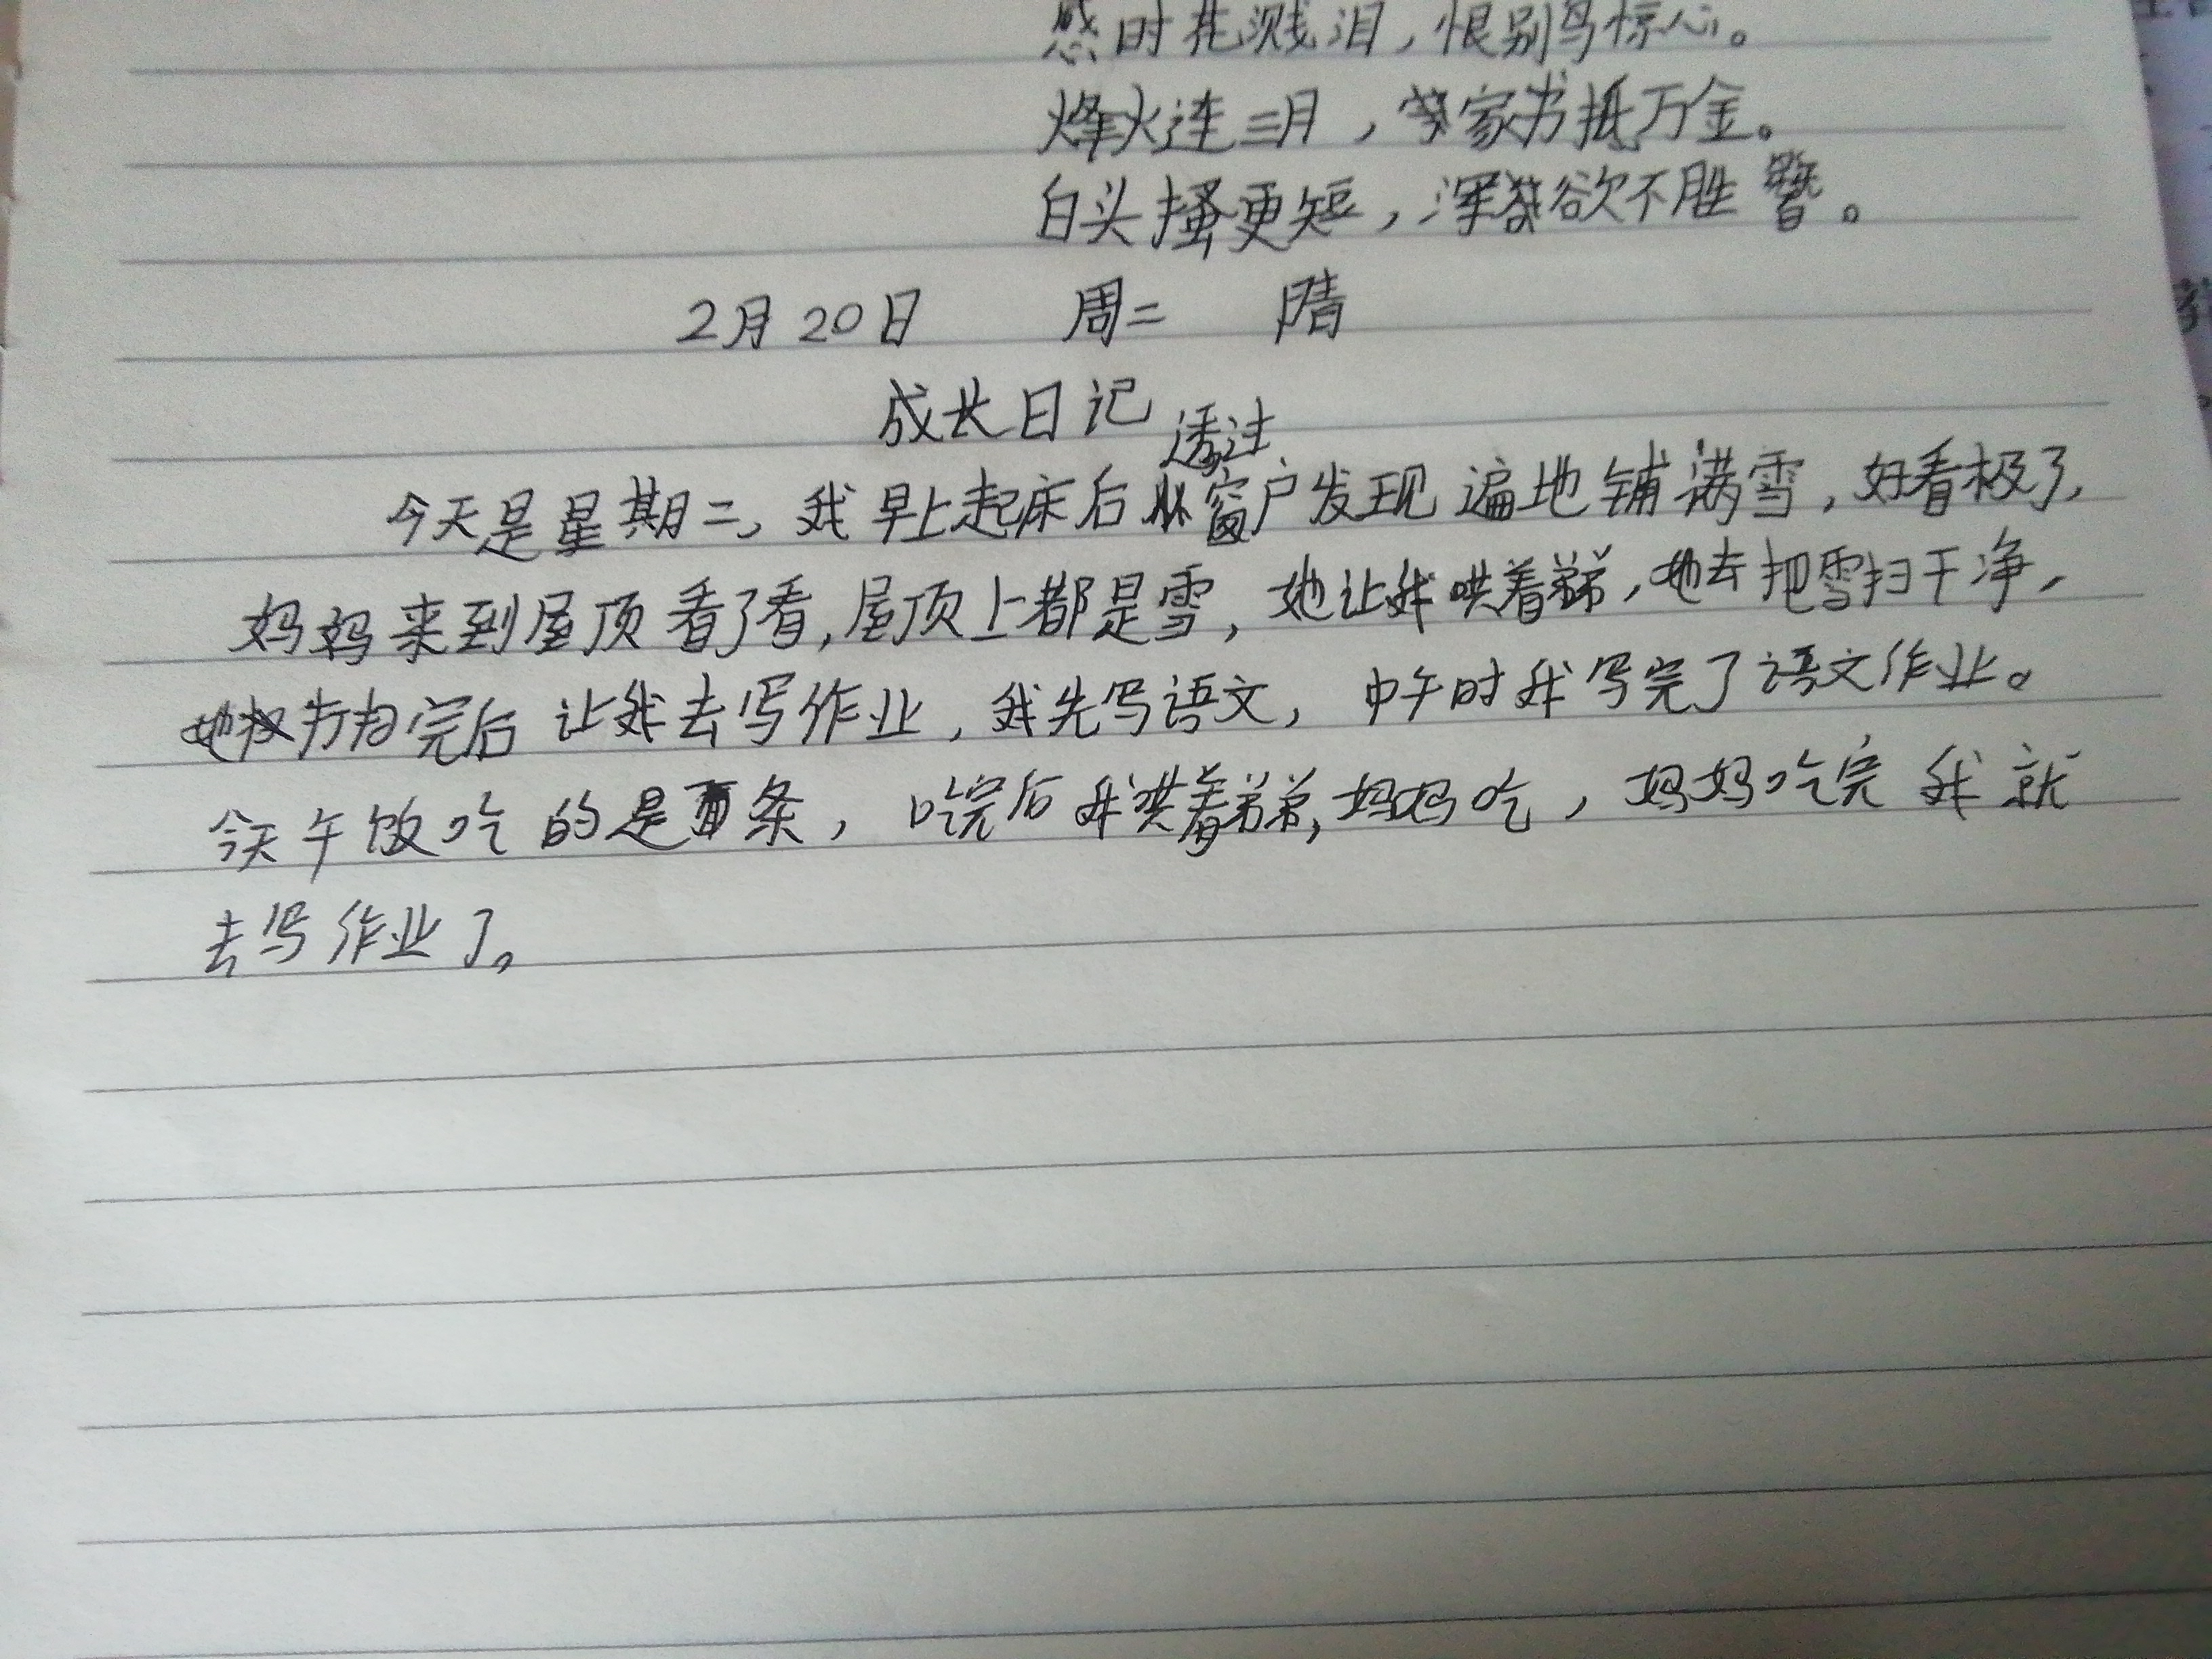 感时花溅泪，恨别鸟惊心。
烽火连三月，家书抵万金。
白头搔更短，浑欲不胜簪。
2月20日 周二 晴
成长日记
透过
今天是星期二，我早上起床后从窗户发现遍地铺满雪，好看极了，
妈妈来到屋顶看了看，屋顶上都是雪，她让我哄着弟弟，她去把雪扫干净，
她扫完后让我去写作业，我先写语文，中午时我写完了语文作业。
今天午饭吃的是面条，吃完后我哄着弟弟，妈妈吃，妈妈吃完我就
去写作业了。